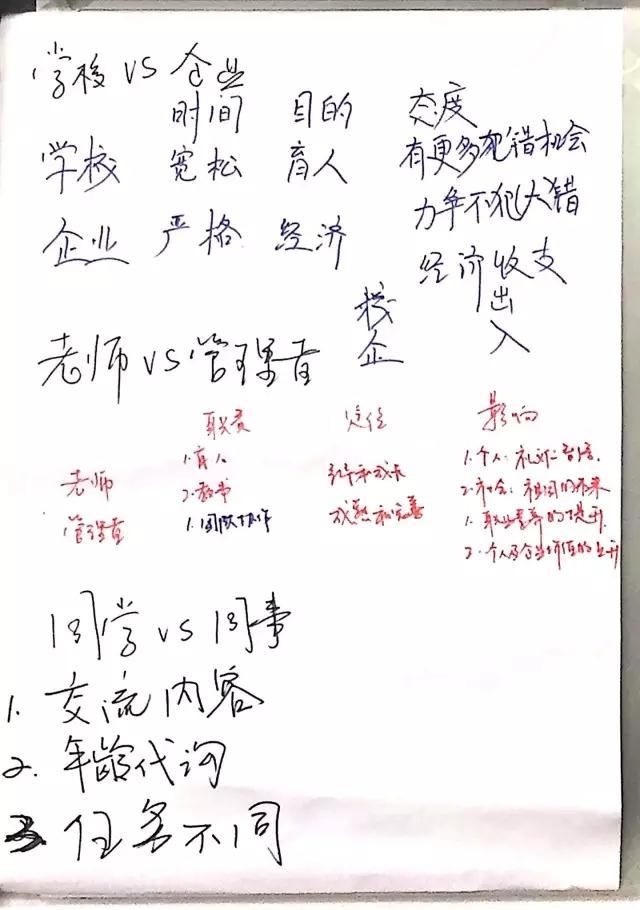 学校 VS 企业
时间 目的 态度
学校 宽松 育人 有更多犯错机会
力争不犯大错
企业 严格 经济
经济收支
校 出
企 入
老师 VS 管理者
职责 定位 影响
1.育人 1.个人:礼义仁智信.
老师 2.教书 引导和成长 2.社会:祖国的未来
管理者 1.团队协作 成熟和完善 1.职业素养的提升
2.个人及企业价值的上升
同学 VS 同事
1. 交流内容
2. 年龄代沟
3 任务不同